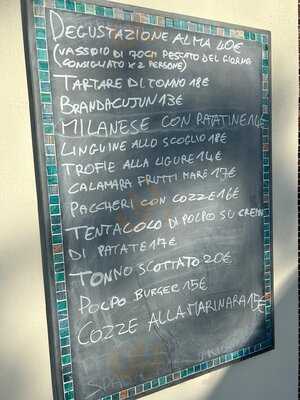 DEGUSTAZIONE ALMA 40€
(VASSOIO DI 70CM PESCATO DEL GIORNO
CONSIGLIATO X 2 PERSONE)
TARTARE DI TONNO 18€
BRANDACUJUN 13€
MILANESE CON PATATINE 16€
LINGUINE ALLO SCOGLIO 18€
TROFIE ALLA LIGURE 14€
CALAMARA FRUTTI MARE 17€
PACCHERI CON COZZE 16€
TENTACOLO DI POLPO SU CREMA
DI PATATE 17€
TONNO SCOTTATO 20€
POLPO BURGER 15€
COZZE ALLA MARINARA 15€